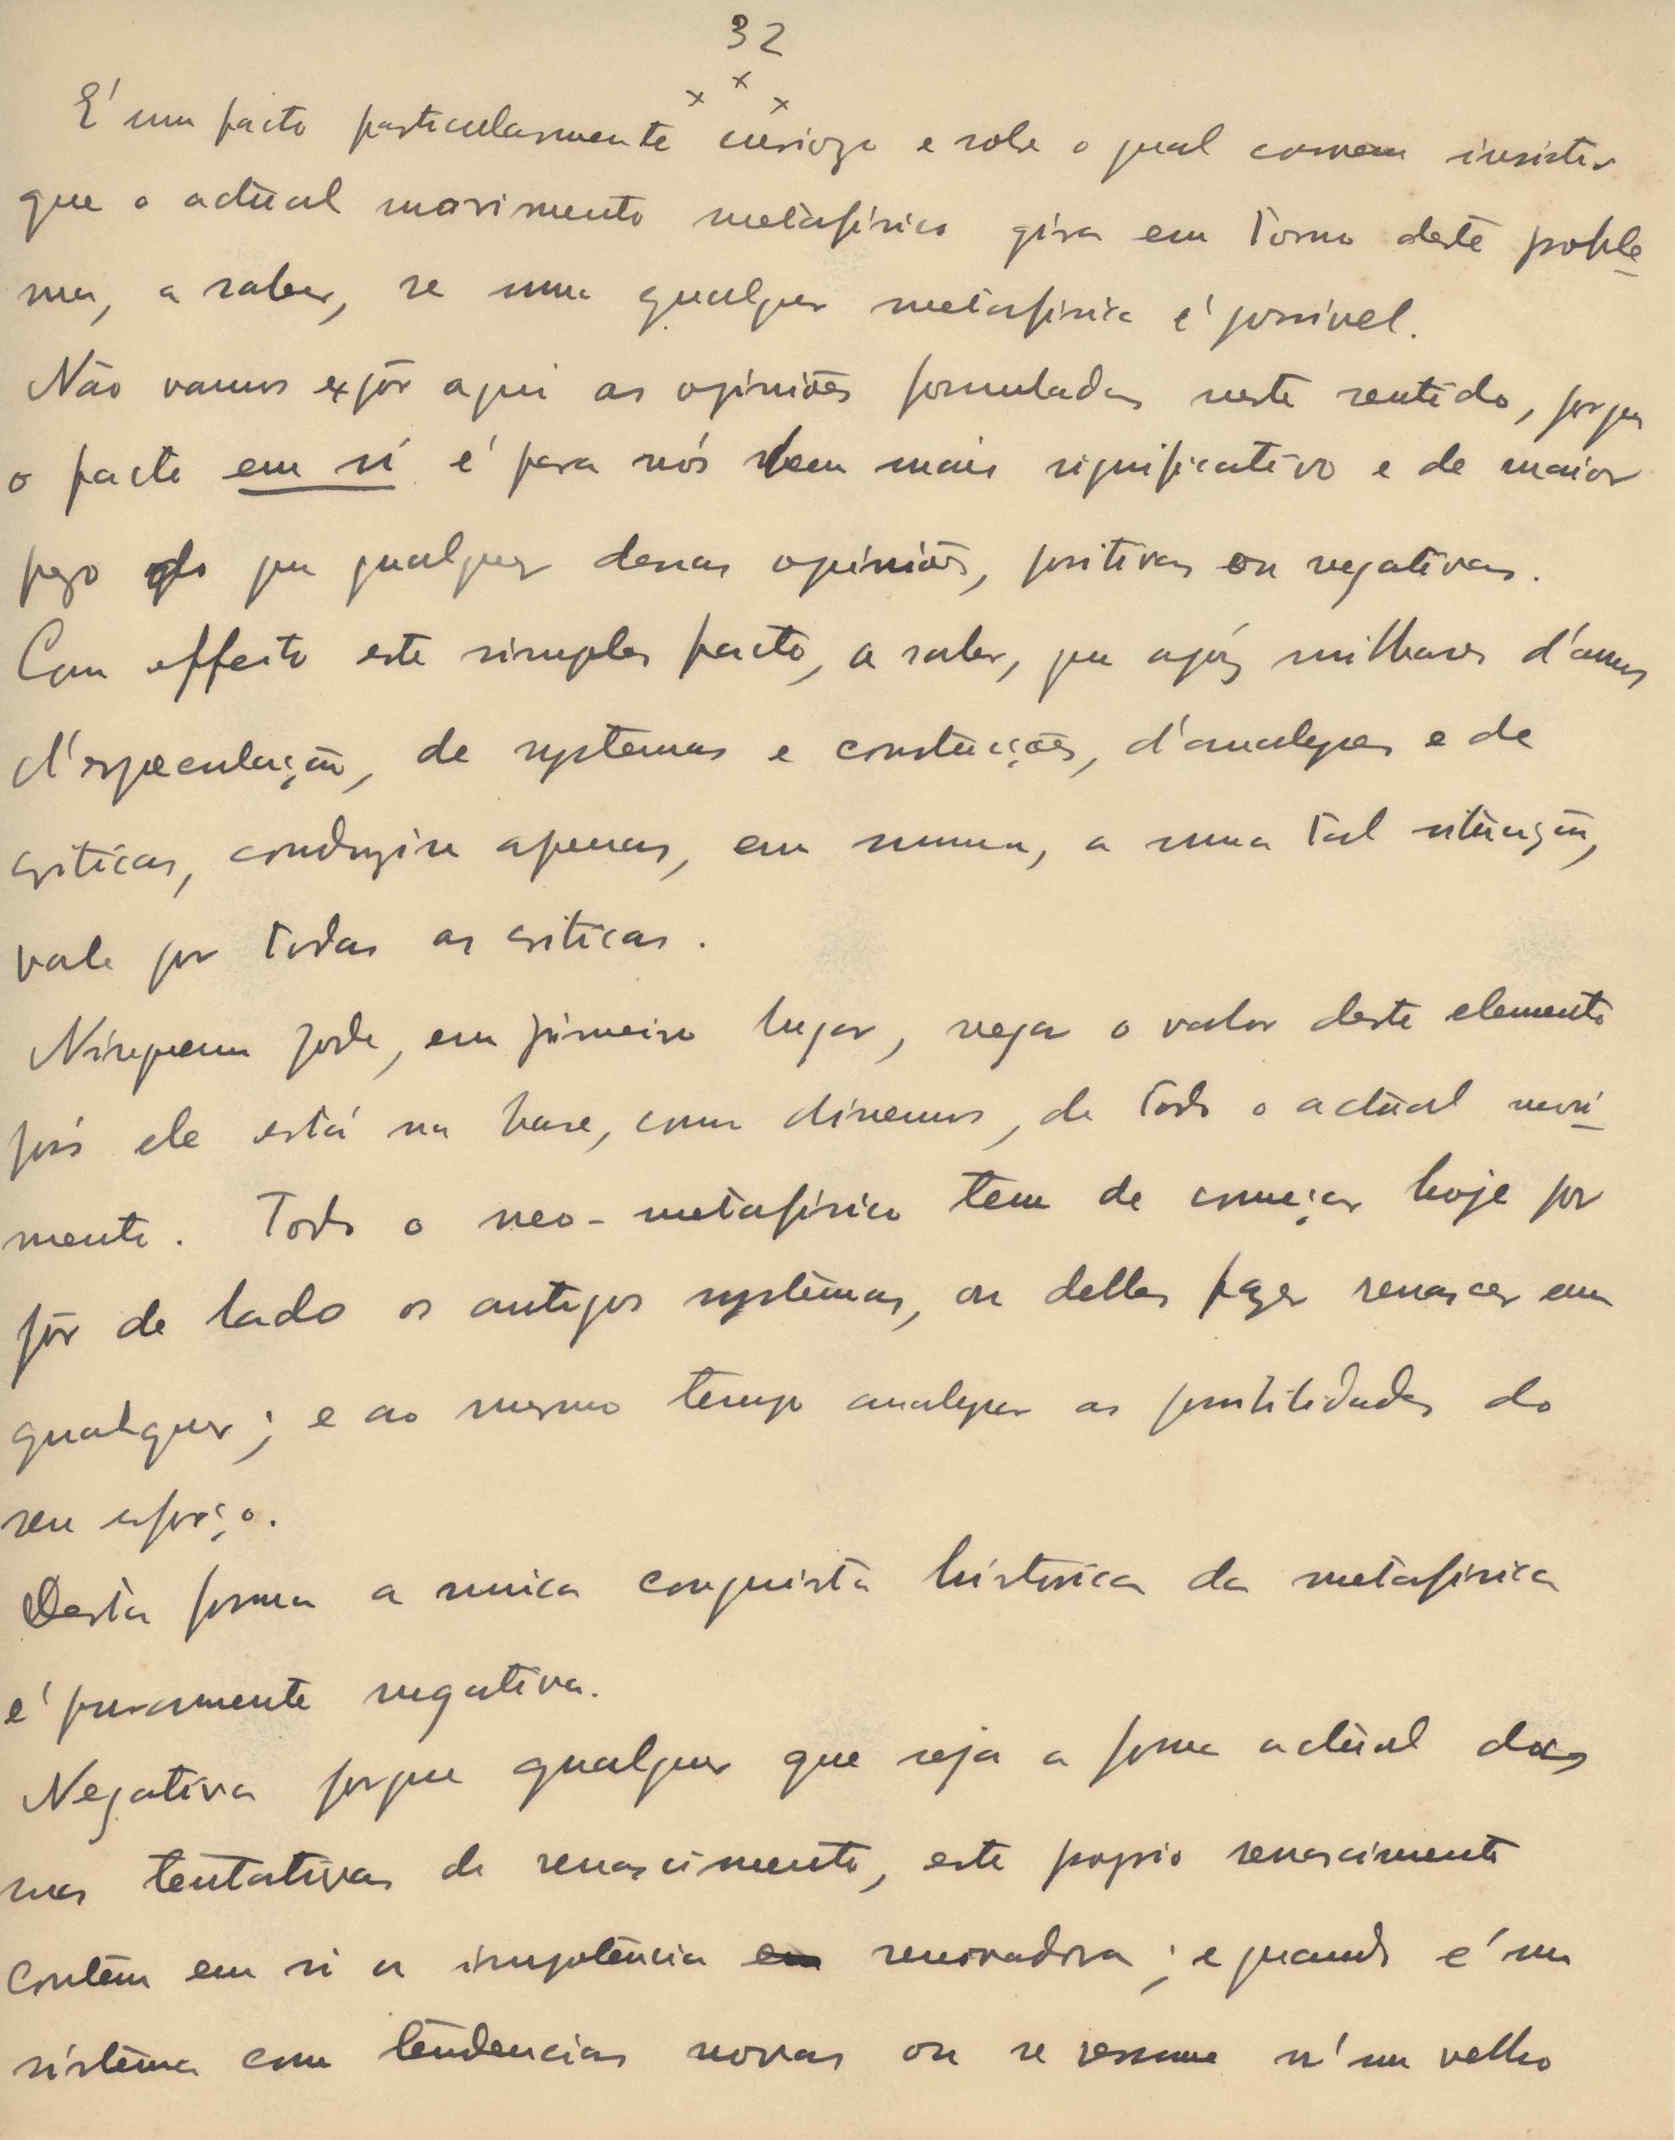 32
x x x
E' um facto particularmente curiozo e sobre o qual convem insistir
que o actual movimento metafisico gira em torno deste proble-
ma, a saber, se uma qualquer metafisica é possivel.
Não vamos expôr aqui as opiniões formuladas neste sentido, porque
o facto em si é para nós bem mais significativo e de maior
pezo do que qualquer dessas opiniões, positivas ou negativas.
Com effeito este simples facto, a saber, que após milhares d'annos
d'especulação, de systemas e construcções, d'analyses e de
criticas, conduzira apenas, em summa, a uma tal situação,
vale por todas as criticas.
Ninguem pode, em primeiro lugar, negar o valor deste elemento
pois ele está na base, como dissemos, de todo o actual movi-
mento. Todo o neo-metafisico tem de começar hoje por
pôr de lado os antigos systemas, ou delles fazer renascer um
qualquer; e ao mesmo tempo analyzar as possibilidades do
seu esforço.
Desta forma a unica conquista historica da metafisica
é puramente negativa.
Negativa porque qualquer que seja a forma actual das
suas tentativas de renascimento, este proprio renascimento
contem em si a impotencia renovadora; e quando é um
sistema com tendencias novas ou se resume n'um velho